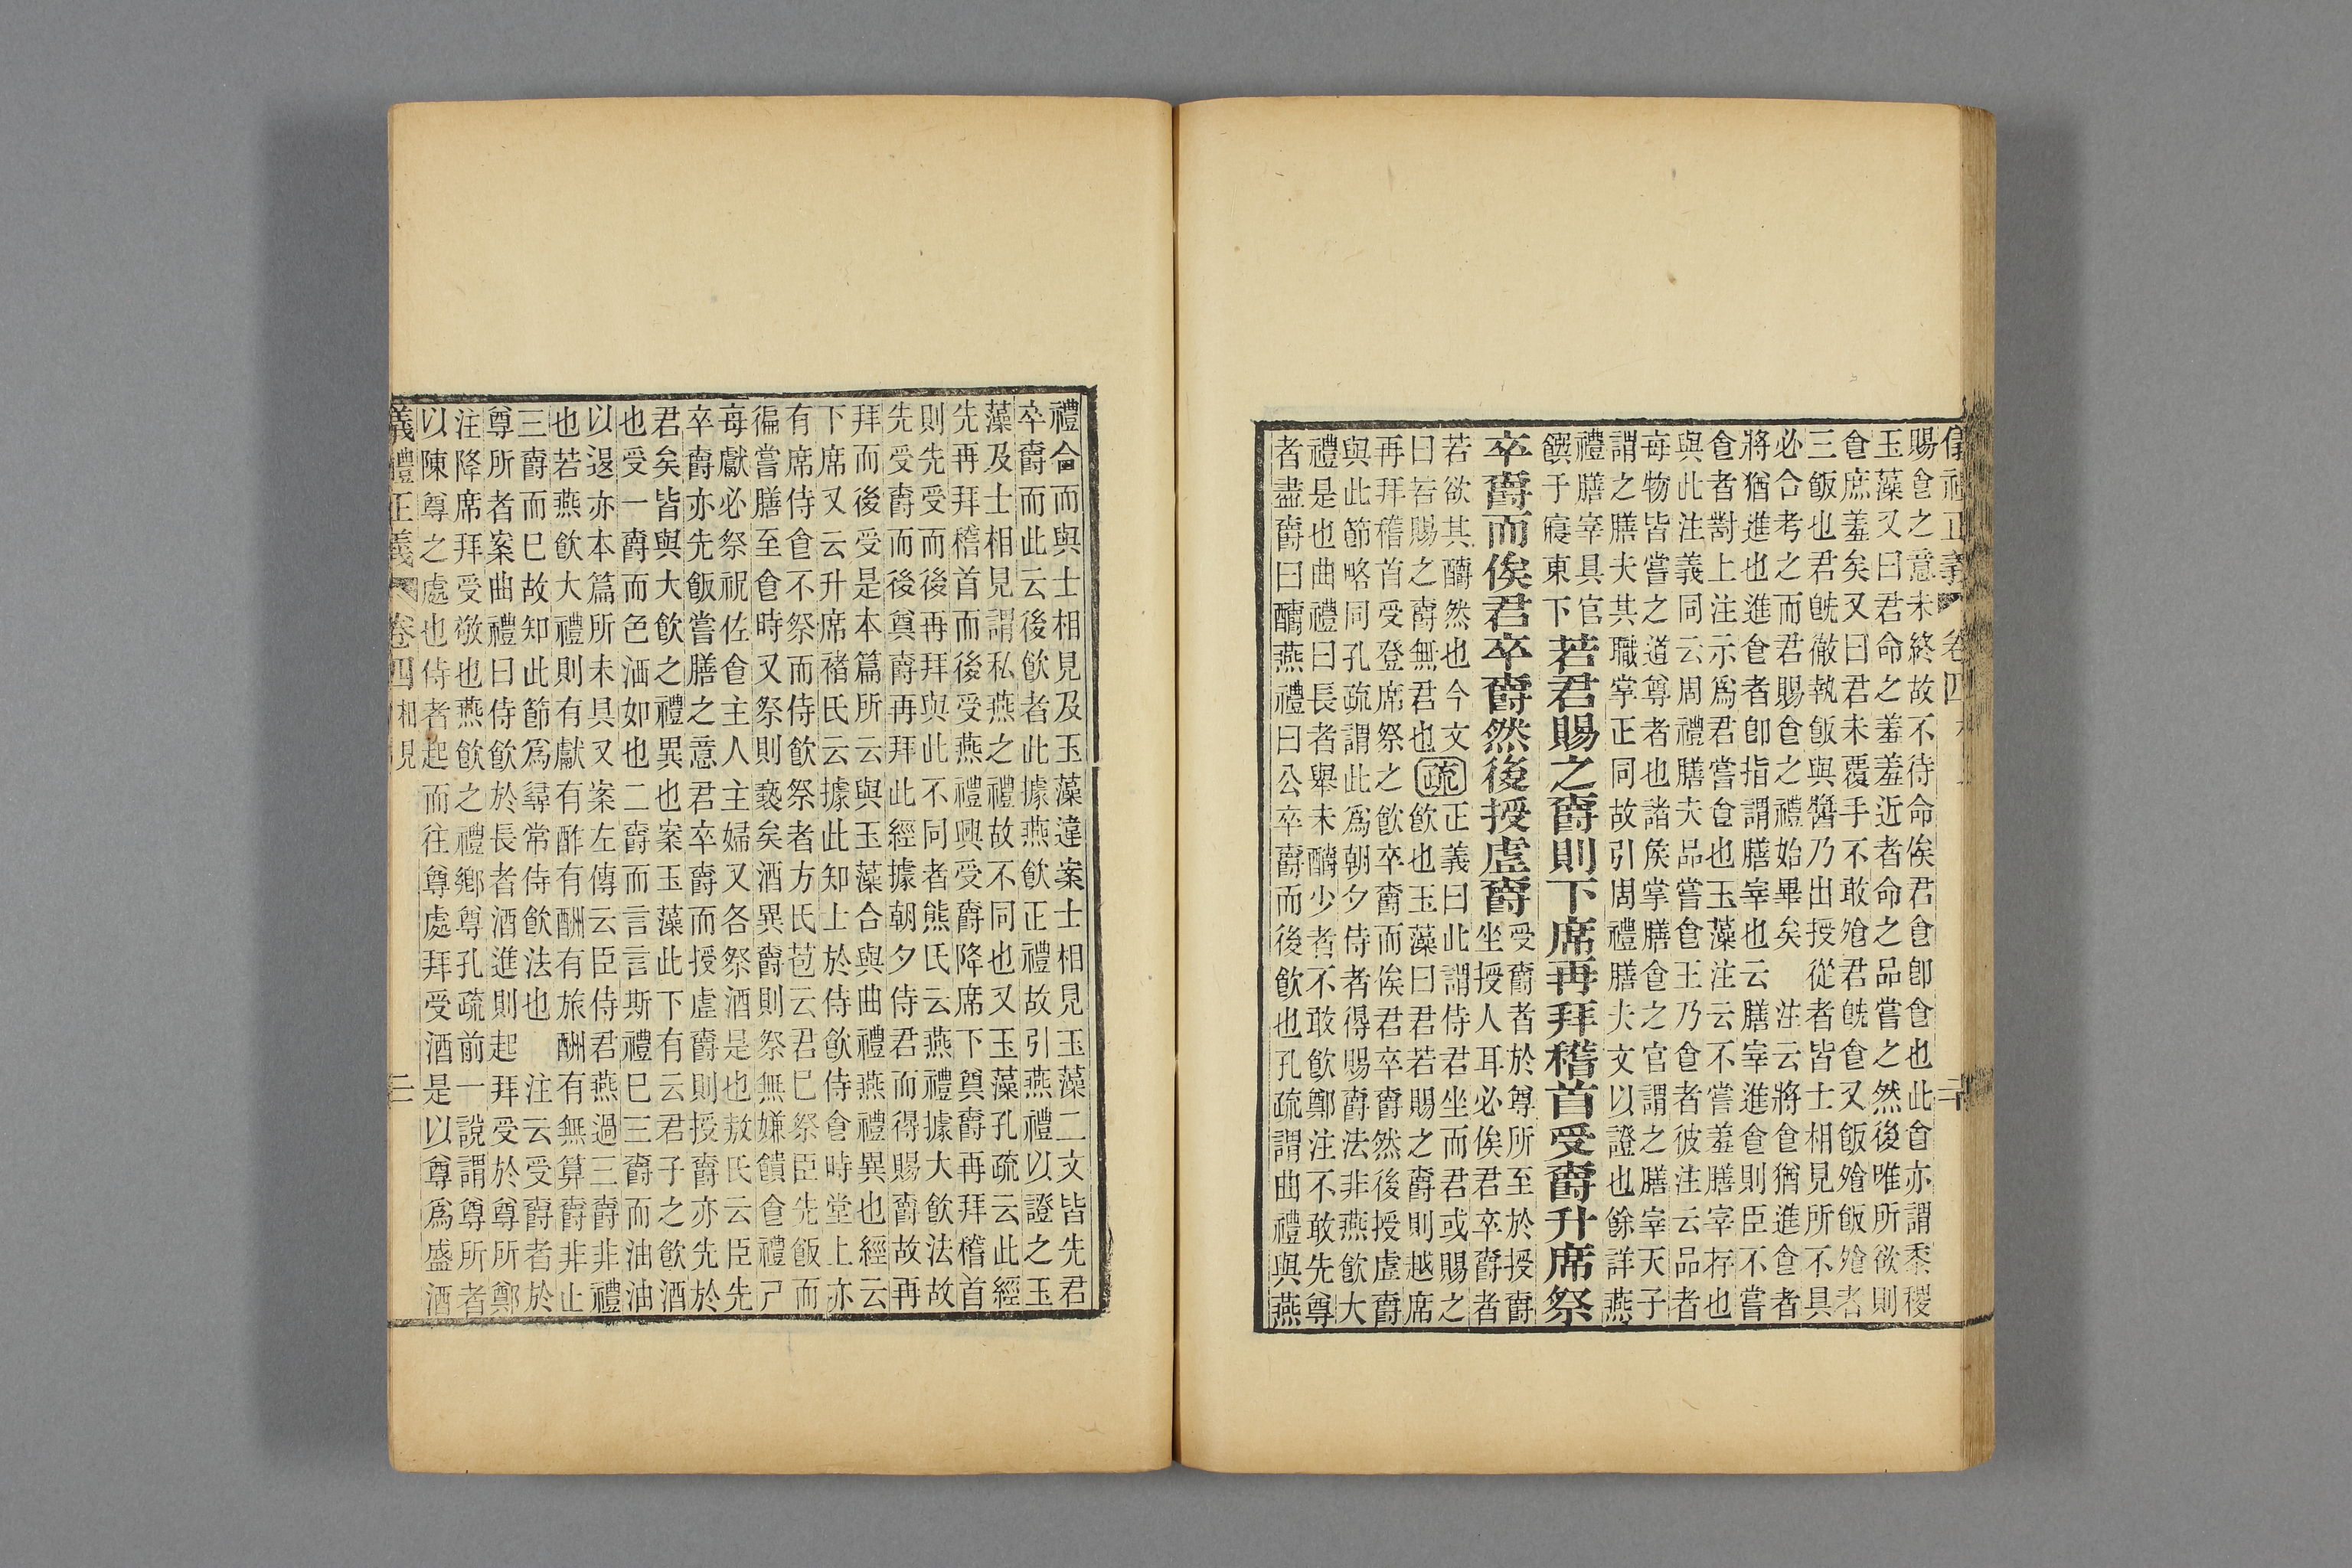 儀禮正義 卷四
賜𩚁之意未終故不待命俟君𩚁卽𩚁也此𩚁亦謂黍稷
玉藻又曰君命之羞羞近者命之品嘗之然後唯所欲則
𩚁庶羞矣又曰君未覆手不敢飧君旣𩚁又飯飧飯飧者
三飯也君旣徹執飯與醬乃出授從者皆士相見所不具
必合考之而君賜𩚁之禮始畢矣 注云將𩚁猶進𩚁者
將猶進也進𩚁者卽指謂膳宰也云膳宰進𩚁則臣不嘗
𩚁者對上注示爲君嘗𩚁也玉藻注云不嘗羞膳宰存也
與此注義同云周禮膳夫品嘗𩚁王乃𩚁者彼注云品者
每物皆嘗之道尊者也諸矦掌膳𩚁之官謂之膳宰天子
謂之膳夫其職掌正同故引周禮膳夫文以證也餘詳燕
禮膳宰具官
饌于寢東下
若君賜之爵則下席再拜稽首受爵升席祭
卒爵而俟君卒爵然後授虛爵
受爵者於尊所至於授爵
坐授人耳必俟君卒爵者
若欲其釂然也今文
曰若賜之爵無君也
疏
正義曰此謂侍君坐而君或賜之
飮也玉藻曰君若賜之爵則越席
再拜稽首受登席祭之飮卒爵而俟君卒爵然後授虛爵
與此節略同孔疏謂此爲朝夕侍者得賜爵法非燕飮大
禮是也曲禮曰長者舉未釂少者不敢飮鄭注不敢先尊
者盡爵曰釂燕禮曰公卒爵而後飮也孔疏謂曲禮與燕
禮合而與士相見及玉藻違案士相見玉藻二文皆先君
卒爵而此云後飮者此據燕飮正禮故引燕禮以證之玉
藻及士相見謂私燕之禮故不同也又玉藻孔疏云此經
先再拜稽首而後受燕禮興受爵降席下奠爵再拜稽首
則先受而後再拜與此不同者熊氏云燕禮據大飮法故
先受爵而後奠爵再拜此經據朝夕侍君而得賜爵故再
拜而後受是本篇所云與玉藻合與曲禮燕禮異也經云
下席又云升席褚氏云據此知上於侍飮侍𩚁時堂上亦
有席侍𩚁不祭而侍飮祭者方氏苞云君巳祭臣先飯而
徧嘗膳至𩚁時又祭則褻矣酒異爵則祭無嫌饋𩚁禮尸
每獻必祭祝佐𩚁主人主婦又各祭酒是也敖氏云臣先
卒爵亦先飯嘗膳之意君卒爵而授虛爵則授爵亦先於
君矣皆與大飮之禮異也案玉藻此下有云君子之飮酒
也受一爵而色洒如也二爵而言言斯禮巳三爵而油油
以退亦本篇所未具又案左傳云臣侍君燕過三爵非禮
也若燕飮大禮則有獻有酢有酬有旅酬有無算爵非止
三爵而巳故知此節爲尋常侍飮法也 注云受爵者於
尊所者案曲禮曰侍飮於長者酒進則起拜受於尊所鄭
注降席拜受敬也燕飮之禮鄉尊孔疏前一說謂尊所者
以陳尊之處也侍者起而往尊處拜受酒是以尊爲盛酒
儀禮正義 卷四 相見 二